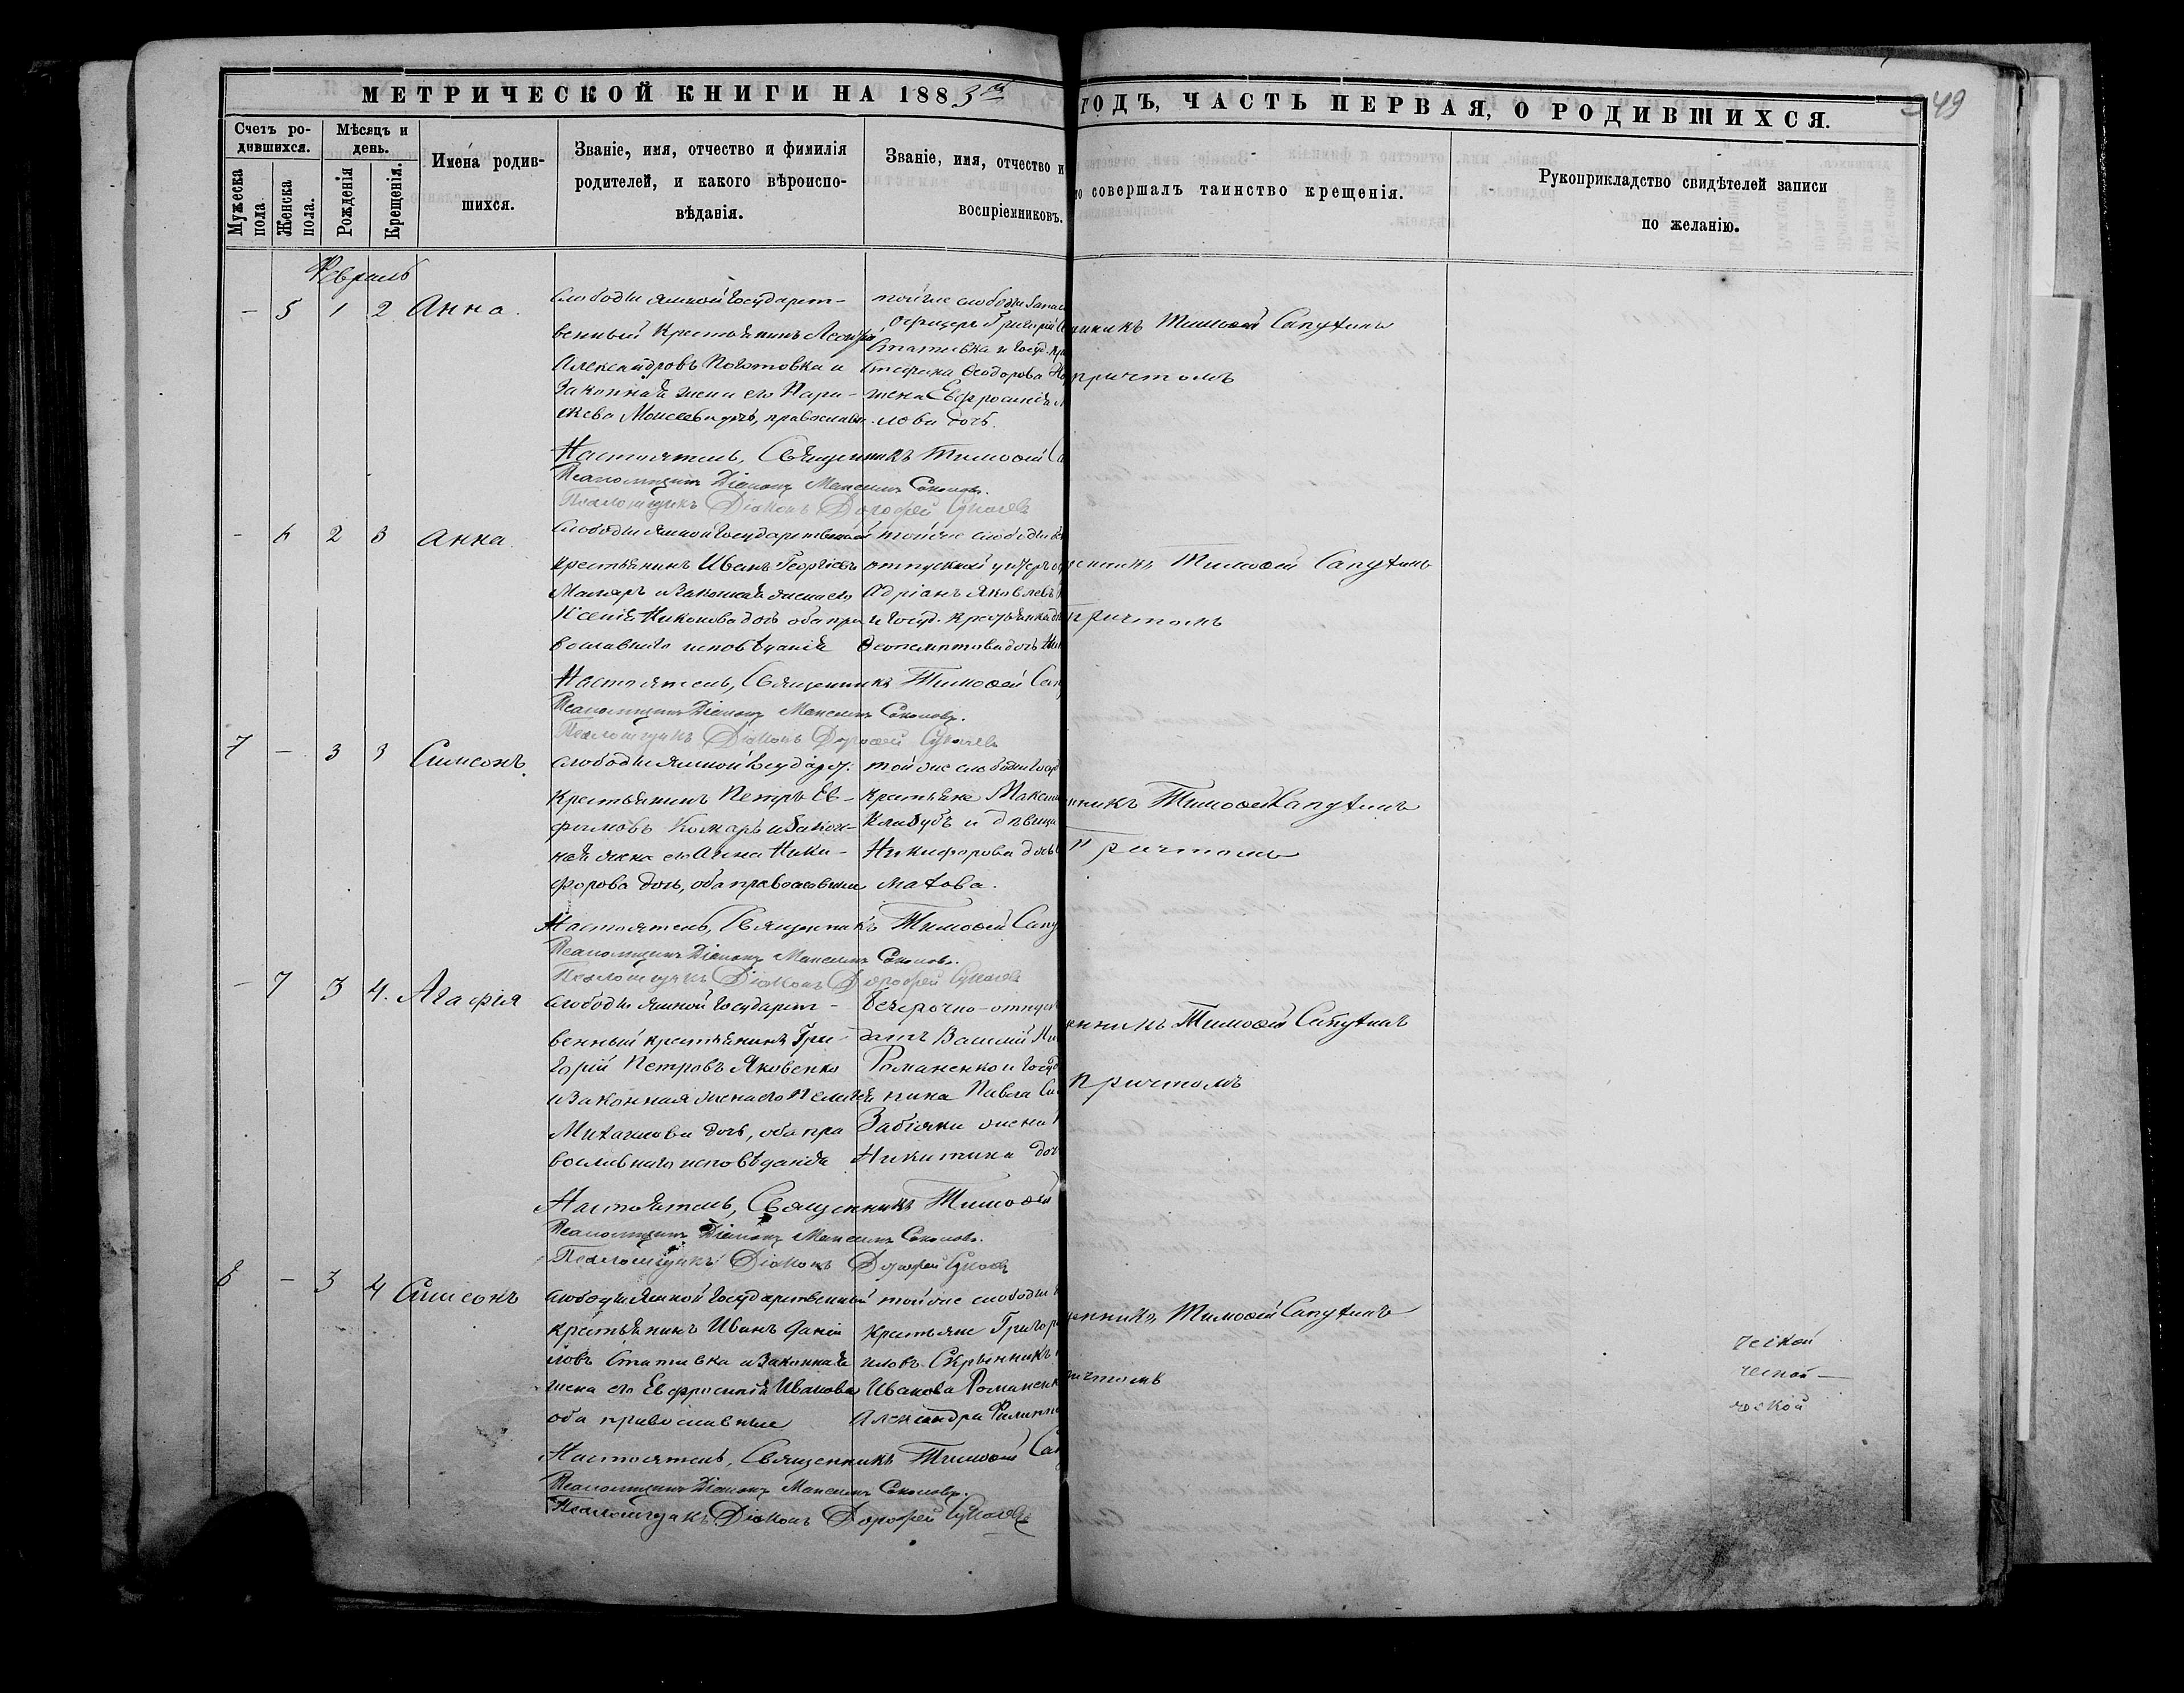 МЕТРИЧЕСКОЙ КНИГИ НА 1883й ГОДЪ, ЧАСТЬ ПЕРВАЯ, О РОДИВШИХСЯ.
349
Счетъ родившихся.
Мужеска пола.
Женска пола.
Мѣсяцъ и день.
Рожденія
Крещенія.
Имена родившихся.
Званіе, имя, отчество и фимилія
родителей, и какого вѣроиспо-
вѣданія.
Званіе, имя, отчество и
воспріемниковъ.
то совершалъ таинство крещенія.
Рукоприкладство свидѣтелей записи
по желанію.
Февраль
- 5 1 2 Анна.
Слободы Ямной Государст-
венный Крестьянинъ
Александровъ и
Законная жена его Пара-
скева Моисеева дочь, православн.
той же слободы
Офицеръ Григорій
Стативка и Госуд. кр
Стефана Ѳеодорова
жена Евфросинія
лова дочь.
никъ Тимоѳей Сапухинъ
причтомъ
Настоятель, Священникъ Тимоѳей Са
Псаломщикъ Діаконъ Максимъ Соколовъ.
Псаломщикъ Діаконъ Дорофей
- 6 2 3 Анна.
Слободы Ямной Государственный
крестьянинъ Иванъ Георгіевъ
и законная жена его
Ксенія Никонова дочь оба пра
вославнаго исповѣданія
той же слободы
отпускной унтеръ
Адріанъ Яковлевъ
и Госуд. крестьянка
дочь
щенникъ Тимоѳей Сапухинъ
причтомъ
Настоятель, Священникъ Тимоѳей Сап
Псаломщикъ Діаконъ Максимъ Соколовъ.
Псаломщикъ Діаконъ Дорофей
7 - 3 3 Симеонъ.
Слободы Ямной Государ.
Крестьянинъ Петръ Ев-
фимовъ и закон-
ная жена его Анна Ники-
форова дочь, оба православные
той же слободы Госуд
Крестьяне Максим
и дѣвица
Никифорова дочь
матова.
нникъ Тимоѳей Сапухинъ
Причтомъ
Настоятель, Священникъ Тимоѳей Сапу
Псаломщикъ Діаконъ Максимъ Соколовъ.
Псаломщикъ Діаконъ Дорофей
- 7 3 4. Агафія
Слободы Ямной Государст-
венный крестьянинъ Гри-
горій Петровъ Яковенко
и Законная жена его
Михаилова дочь, оба пра
вославнаго исповѣданія
безсрочно-отпуск
датъ Василій
Романенко и Госуд
нина Павла
жена
Никитина доч
енникъ Тимоѳей Сапухинъ
причтомъ
Настоятель, Священникъ Тимоѳей
Псаломщикъ Діаконъ Максимъ Соколовъ.
Псаломщикъ Діаконъ Дорофей
8 - 3 4 Симеонъ
Слободы Ямной Государственный
крестьянинъ Иванъ Даніи
ловъ Стативка и Законная
жена его Евфросинія Иванова
оба православные
той же слободы
Крестьяне Григор
иловъ Скрынникъ
Иванова Романенк
Александра Филипп
щенникъ Тимоѳей Сапухинъ
ичтомъ
ческой
ческой -
ческой
Настоятель, Священникъ Тимоѳей Сап
Псаломщикъ Діаконъ Максимъ Соколовъ.
Псаломщикъ Діаконъ Дорофей